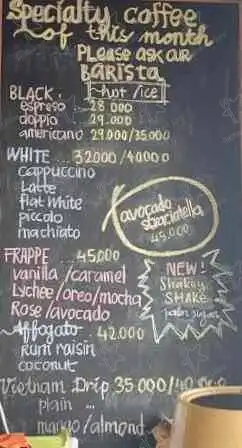 Specialty coffee
of this month
PLease ask our
BARISTA
BLACK. hot/ice
espreso ... 28.000
doppio ... 29.000
americano 29.000/35.000
WHITE ... 32000/40000
cappuccino
Latte
flat white
piccolo
machiato
avocado
straciatella
45.000
FRAPPE ... 45,000
vanilla/caramel
Lychee/oreo/mocha
Rose/avocado
NEW!
Shakey
SHAKE
palm sugar
Affogato .. 42.000
Rum raisin
coconut
Vietnam Drip 35000/40.000
plain ...
mango/almond